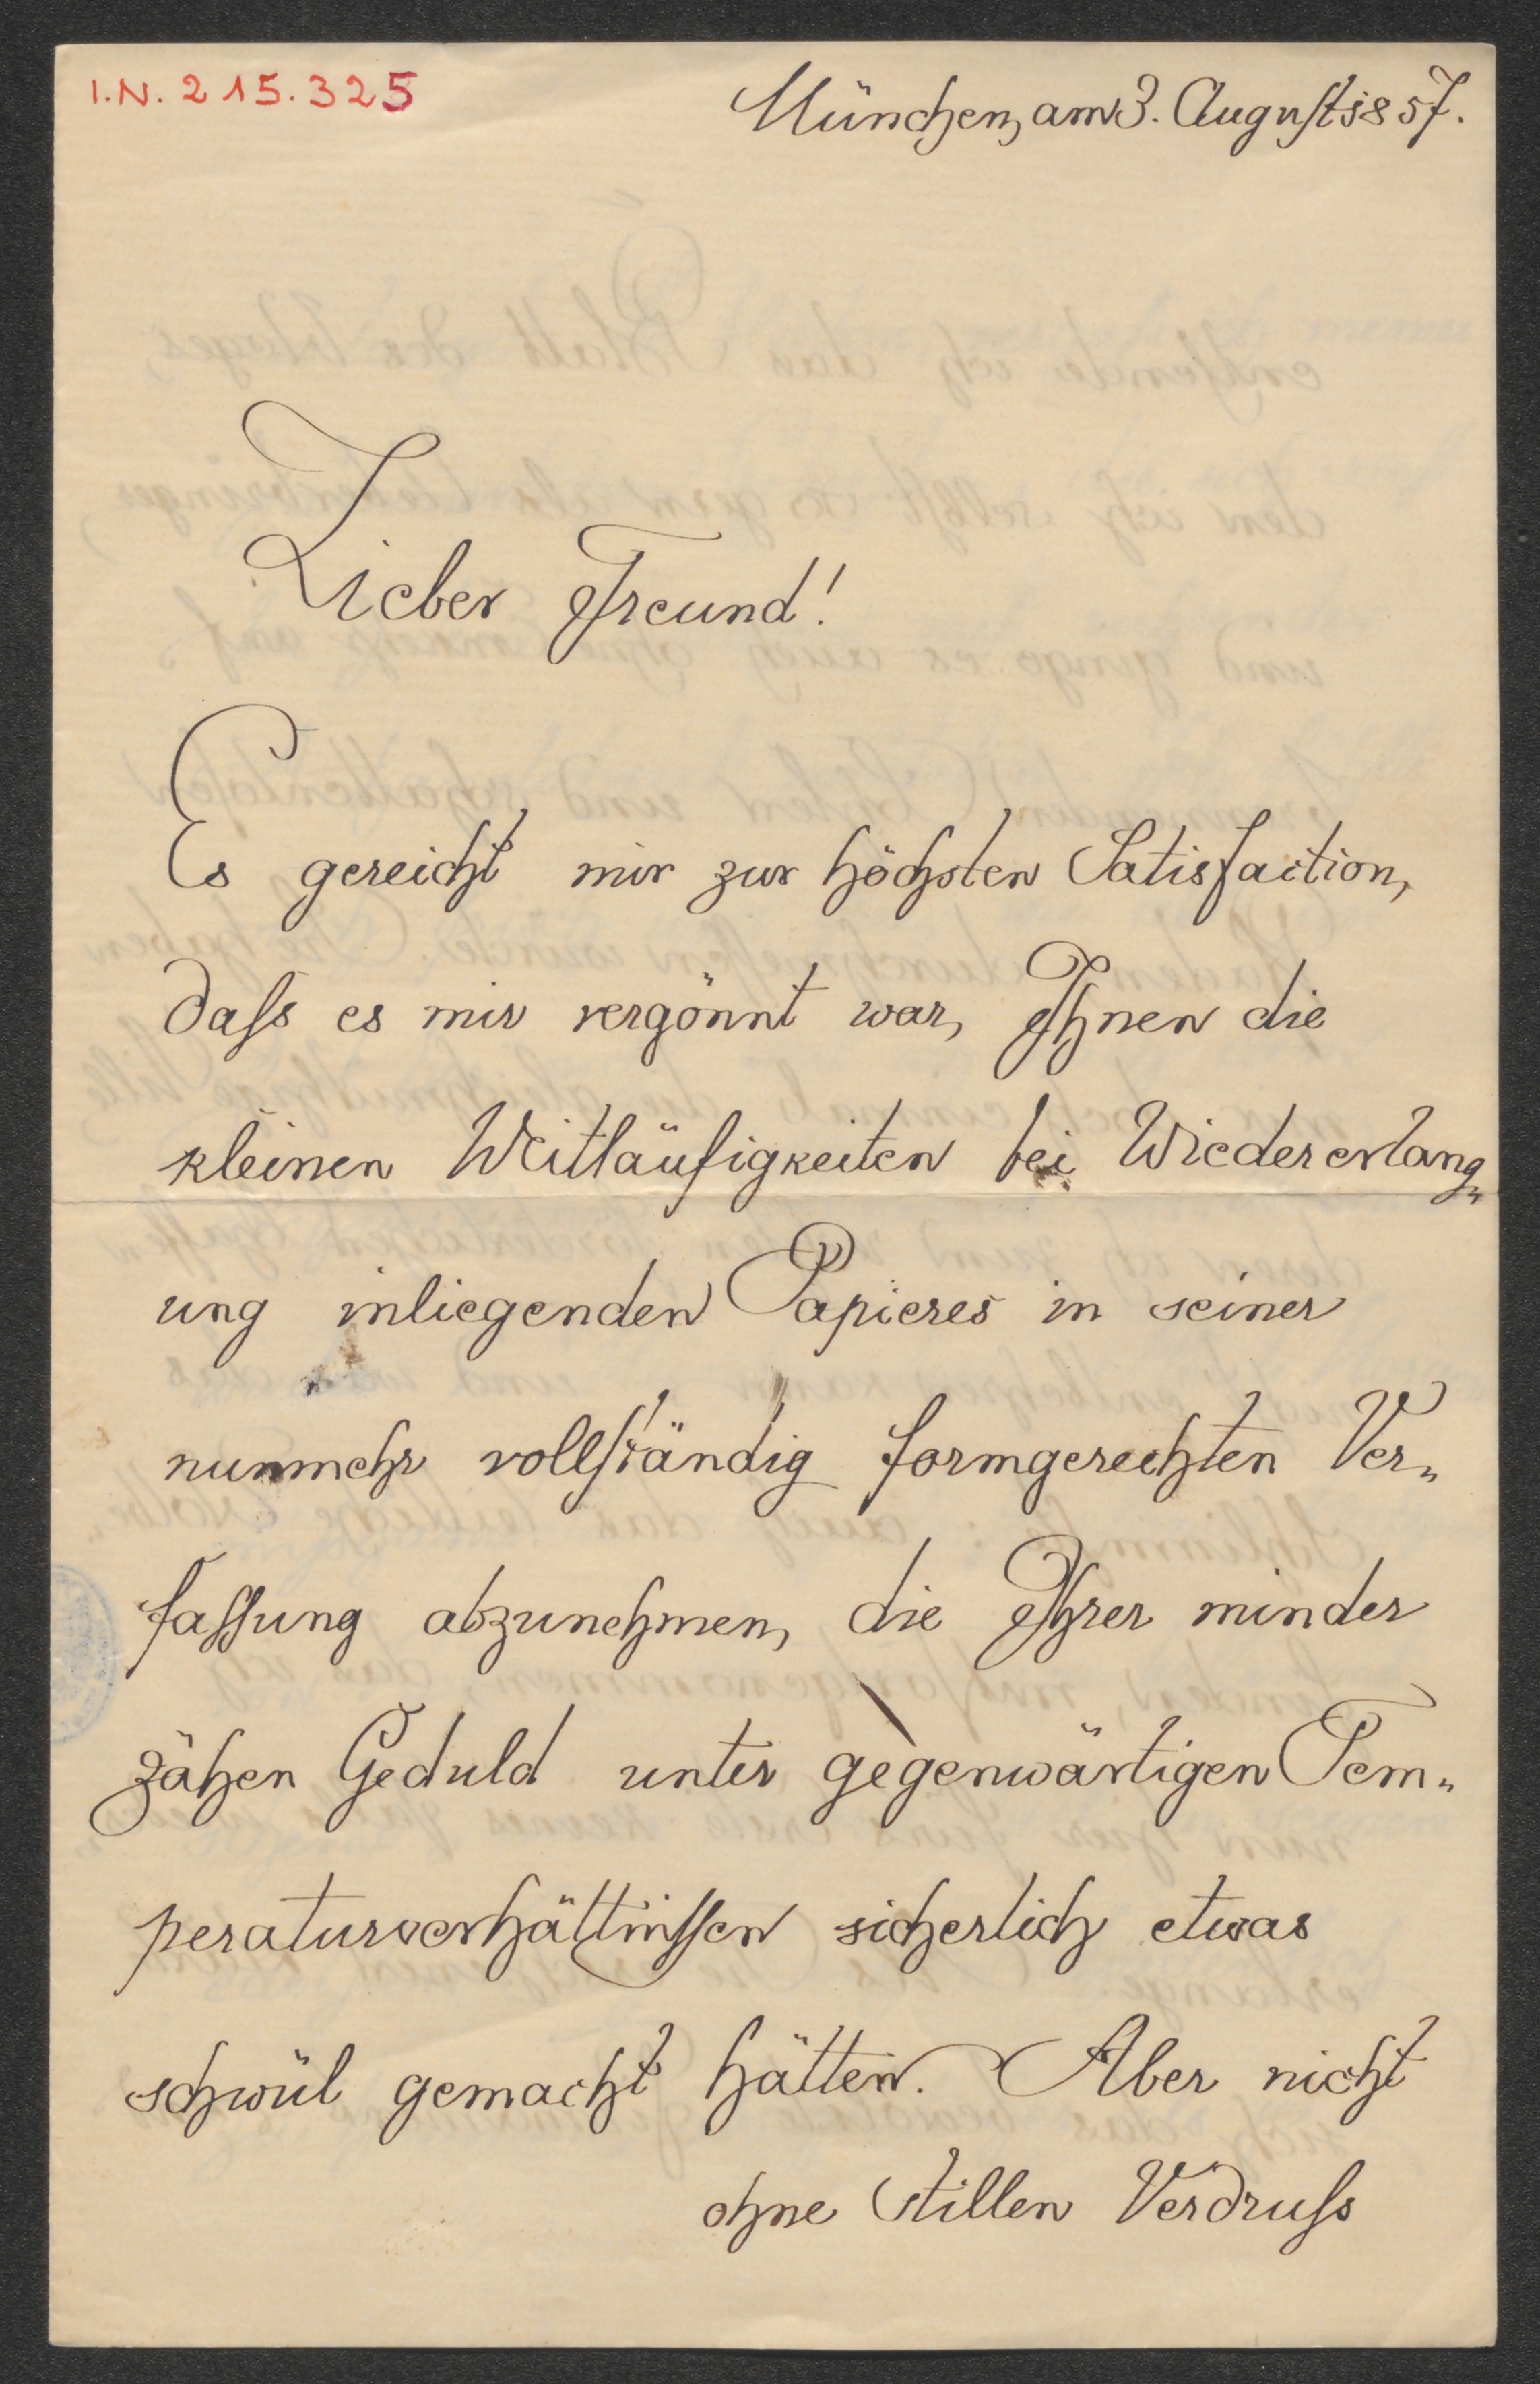 I.N. 215.325
München, am 3. August 1857.
Lieber Freund!
Es gereicht mir zur höchsten Satisfaction,
dass es mir vergönnt war, Ihnen die
kleinen Weitläufigkeiten bei Wiedererlang„
ung inliegenden Papieres in seiner
nunmehr vollständig formgerechten Ver„
fassung abzunehmen, die Ihrer minder
zähen Geduld unter gegenwärtigen Tem„
peraturverhältnissen sicherlich etwas
schwül gemacht hätten. Aber nicht
ohne stillen Verdruss